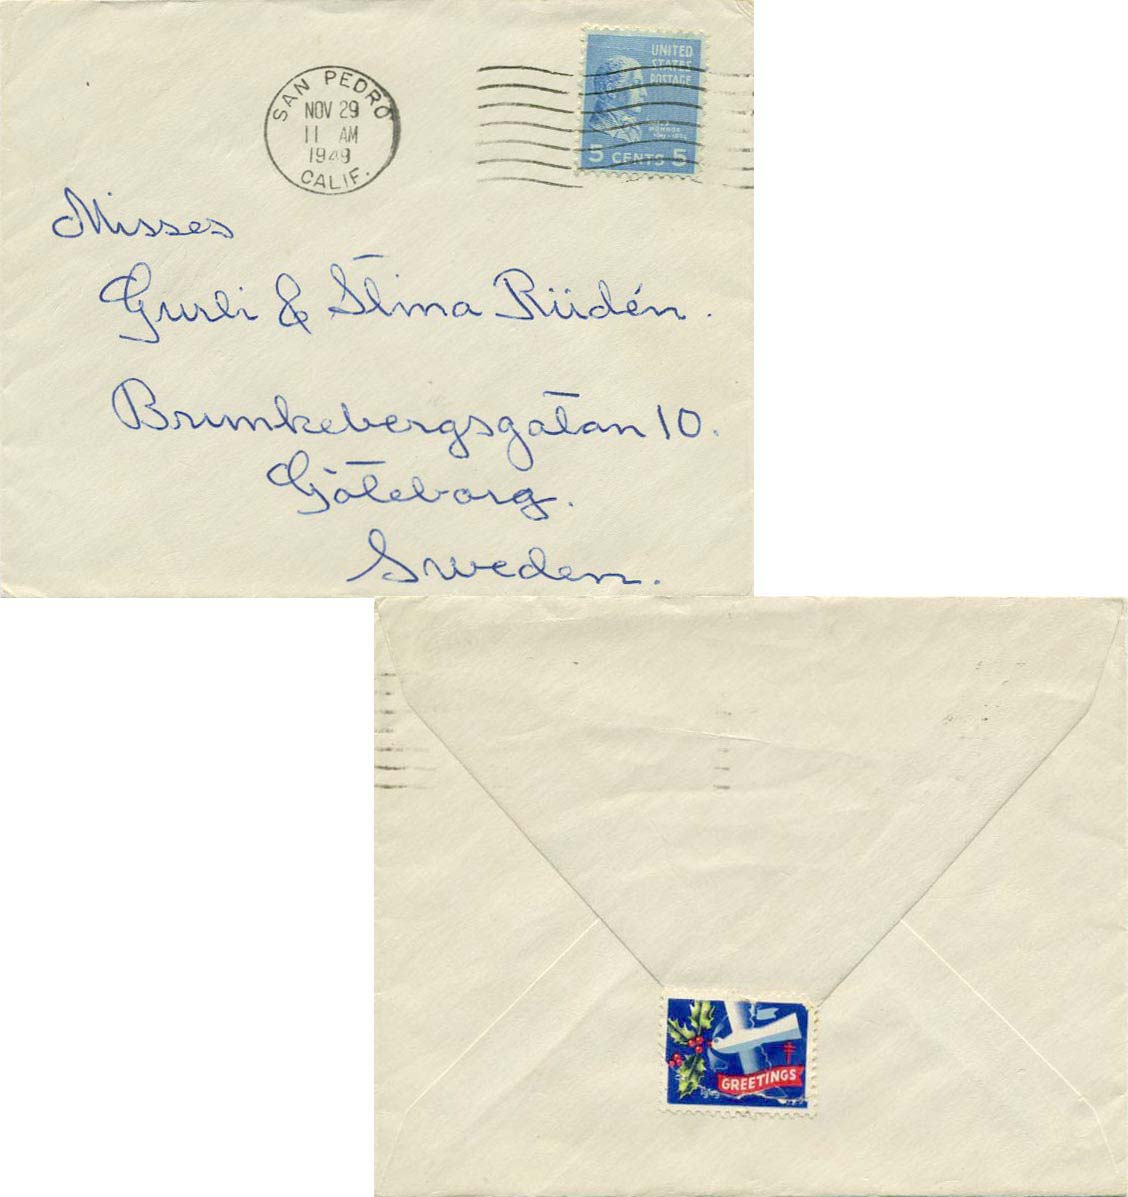 SAN PEDRO
NOV 29
11 AM
1949
CALIF.
UNITED
STATES
POSTAGE
MONROE
5 CENTS 5
Misses
Gurli & Stina Rüdén.
Brunkebergsgatan 10.
Göteborg.
Sweden.
GREETINGS
1949